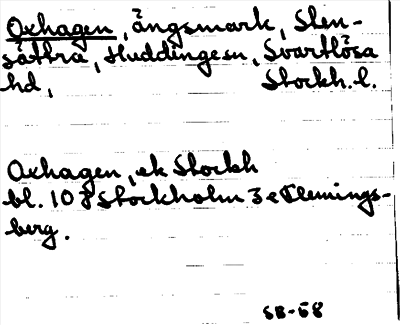 Oxhagen, ängsmark, Sten-
sättra, Huddinge sn, Svartlösa
hd, Stockh. l.
Oxhagen, ek Stockh
bl. 10 Stockholm 3 e Flemings-
berg.
SB-58